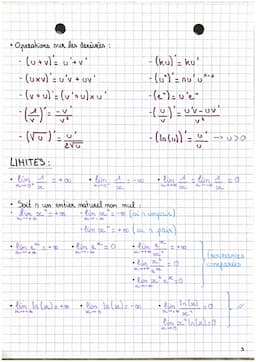 • Opérations sur les dérivées :
- (u+v)' = u'+v'
- (ku)' = ku'
- (u×v)' = u'v + uv'
- (uⁿ)' = nu' uⁿ⁻¹
- (v∘u)' = (v'∘u)×u'
- (eᵘ)' = u'eᵘ
- (1/v)' = -v'/v²
- (u/v)' = u'v-uv'/v²
- (√u)' = u'/2√u
- (ln(u))' = u'/u → u>0
LIMITES :
• lim 1/x = +∞ • lim 1/x = -∞ • lim 1/x = lim 1/x = 0
• Soit n un entier naturel non nul :
• lim xⁿ = +∞ • lim xⁿ = -∞ (si n impair)
• lim xⁿ = +∞ (si n pair)
• lim eˣ = +∞ • lim eˣ = 0 • lim eˣ/xⁿ = +∞
croissances comparées
• lim xⁿ eˣ = 0
• lim ln(x) = +∞ • lim ln(x) = -∞ • lim ln(x)/xⁿ = 0
lim xⁿ ln(x) = 0